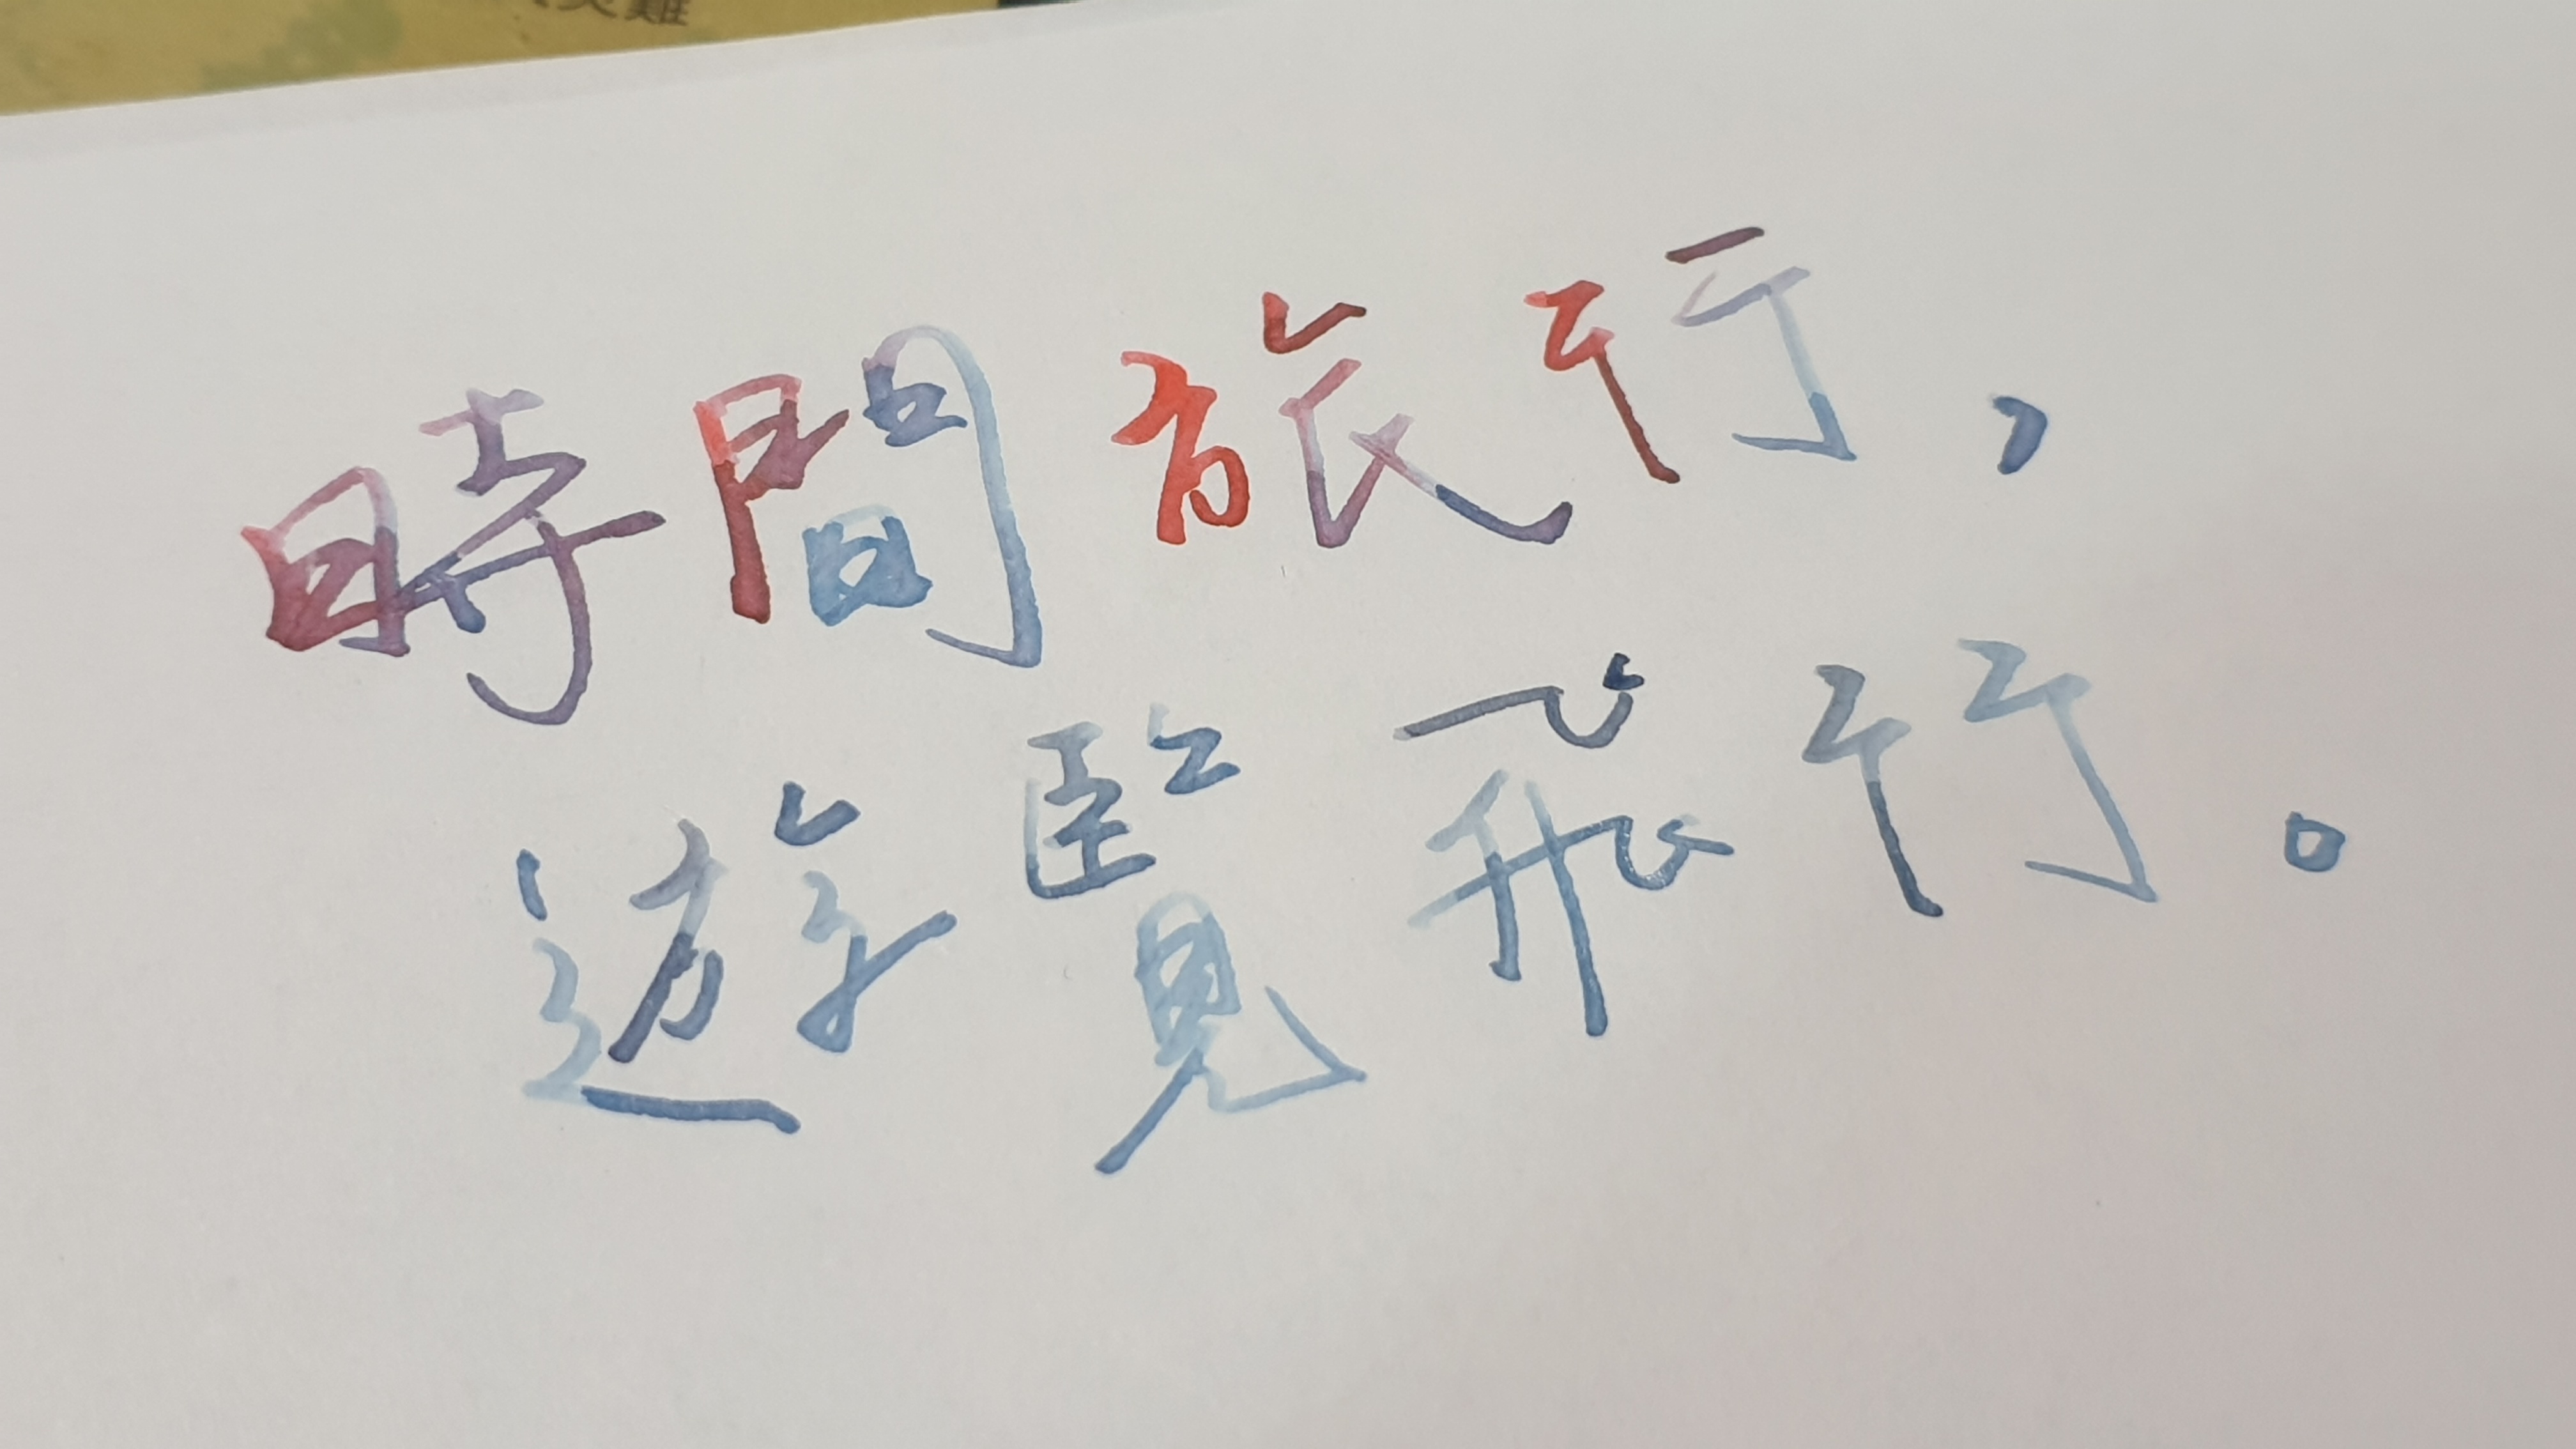 時間旅行，
遊覽飛行。